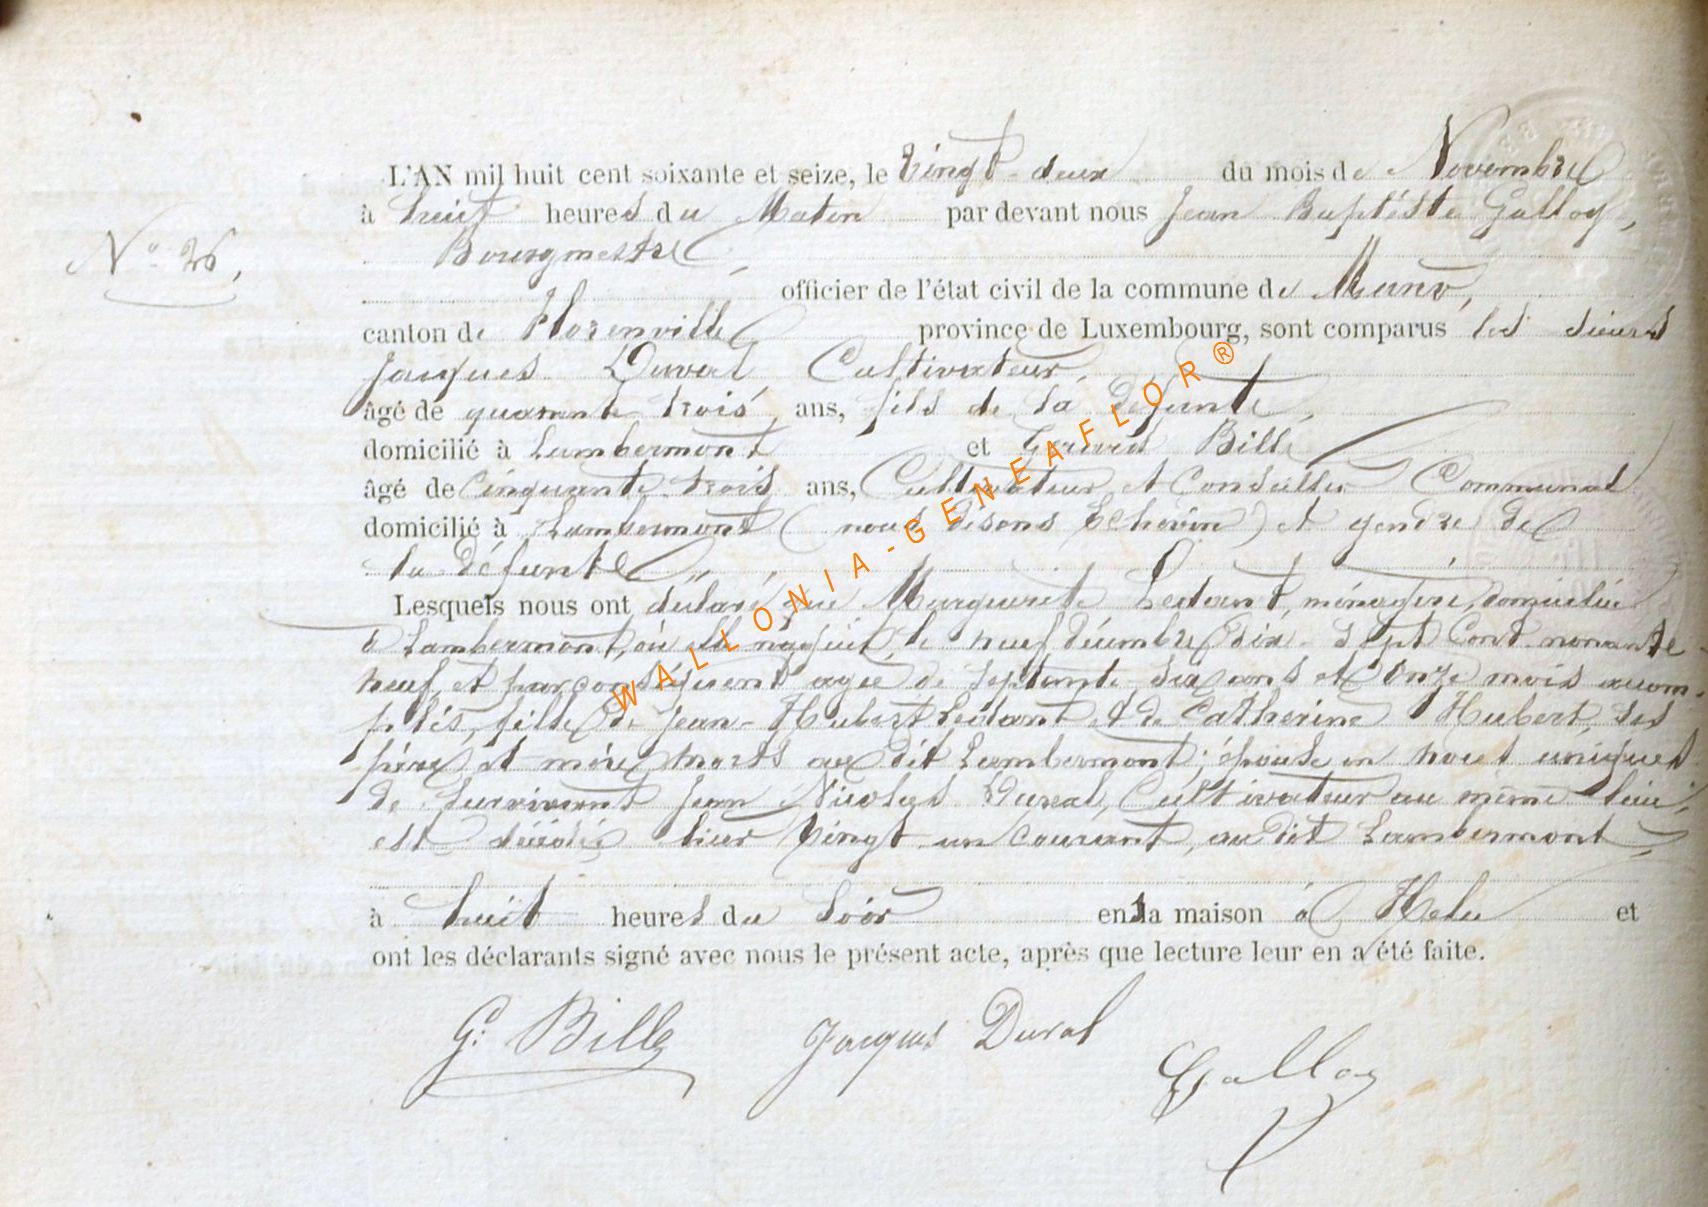 L'AN mil huit cent soixante et seize, le vingt-deux du mois de Novembre
à huit heures du Matin par devant nous Jean Baptiste Galloy,
Bourgmestre,
N° 26,
officier de l'état civil de la commune de Muno,
canton de Florenville province de Luxembourg, sont comparus les sieurs
Jacques Duval Cultivateur,
âgé de quarante trois, ans, fils de la défunte,
domicilié à Lambermont et Gérard Bille
âgé de Cinquante-trois ans, Cultivateur et Conseiller Communal
domicilié à Lambermont (nous disons Echevin) et gendre de
la défunte
Lesquels nous ont déclaré que Marguerite Lextant, ménagère, domiciliée
à Lambermont, où elle naquit, le neuf décembre dix-sept Cent nonante-
neuf, et par conséquent agée de septante-six ans et onze mois accom-
plis, fille de Jean-Hubert Lextant et de Catherine Hubert, ses
père et mère morts au dit Lambermont; épouse en noces uniques
de survivant Jean Nicolas Duval, Cultivateur au même lieu,
est décédée hier vingt-un courant, au dit Lambermont,
à huit heures du Soir en sa maison à Helu et
ont les déclarants signé avec nous le présent acte, après que lecture leur en a été faite.
G. Bille Jacques Duval
Galloy
WALLONIA-GENEAFLOR®